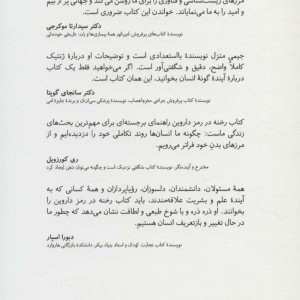 مرزهای زیست‌شناسی و فناوری را برای ما روشن می‌کند و جهانی پر از بیم
و امید را به ما می‌نمایاند. خواندن این کتاب ضروری است.
دکتر سیدارتا موکرجی
نویسندهٔ کتاب‌های پرفروش امپراتور همهٔ بیماری‌ها و ژن: تاریخی خودمانی
جیمی متزل نویسندهٔ بااستعدادی است و توضیحات او دربارهٔ ژنتیک
کاملاً واضح، دقیق و شگفتی‌آور است. اگر می‌خواهید فقط یک کتاب
دربارهٔ آیندهٔ گونهٔ انسان بخوانید، همین کتاب است.
دکتر سانجای گوپتا
نویسندهٔ کتاب پرفروش جراحی مغزواعصاب، نویسندهٔ پزشکی سی‌ان‌ان و برندهٔ جایزهٔ امی
کتاب رخنه در رمز داروین راهنمای برجسته‌ای برای مهم‌ترین بحث‌های
زندگی ماست: چگونه ما انسان‌ها روند تکاملی خود را دزدیده‌ایم و از
مرزهای بدنِ خود فراتر می‌رویم.
ری کورزویل
مخترع و آینده‌نگر، نویسندهٔ کتاب شگفتی نزدیک است و چگونه می‌توان ذهن ایجاد کرد
همهٔ مسئولان، دانشمندان، دلسوزان، رؤیاپردازان و همهٔ کسانی که به
آیندهٔ علم و بشریت علاقه‌مندند، باید کتاب رخنه در رمز داروین را
بخوانند. او ذره ذره و با شوخ طبعی و لطافت نشان می‌دهد که چطور ما
در حال تغییر و بازتعریف انسانیم.
دبورا اسپار
نویسندهٔ کتاب تجارت کودک و استاد بنیاد بیکر، دانشکدهٔ بازرگانی هاروارد